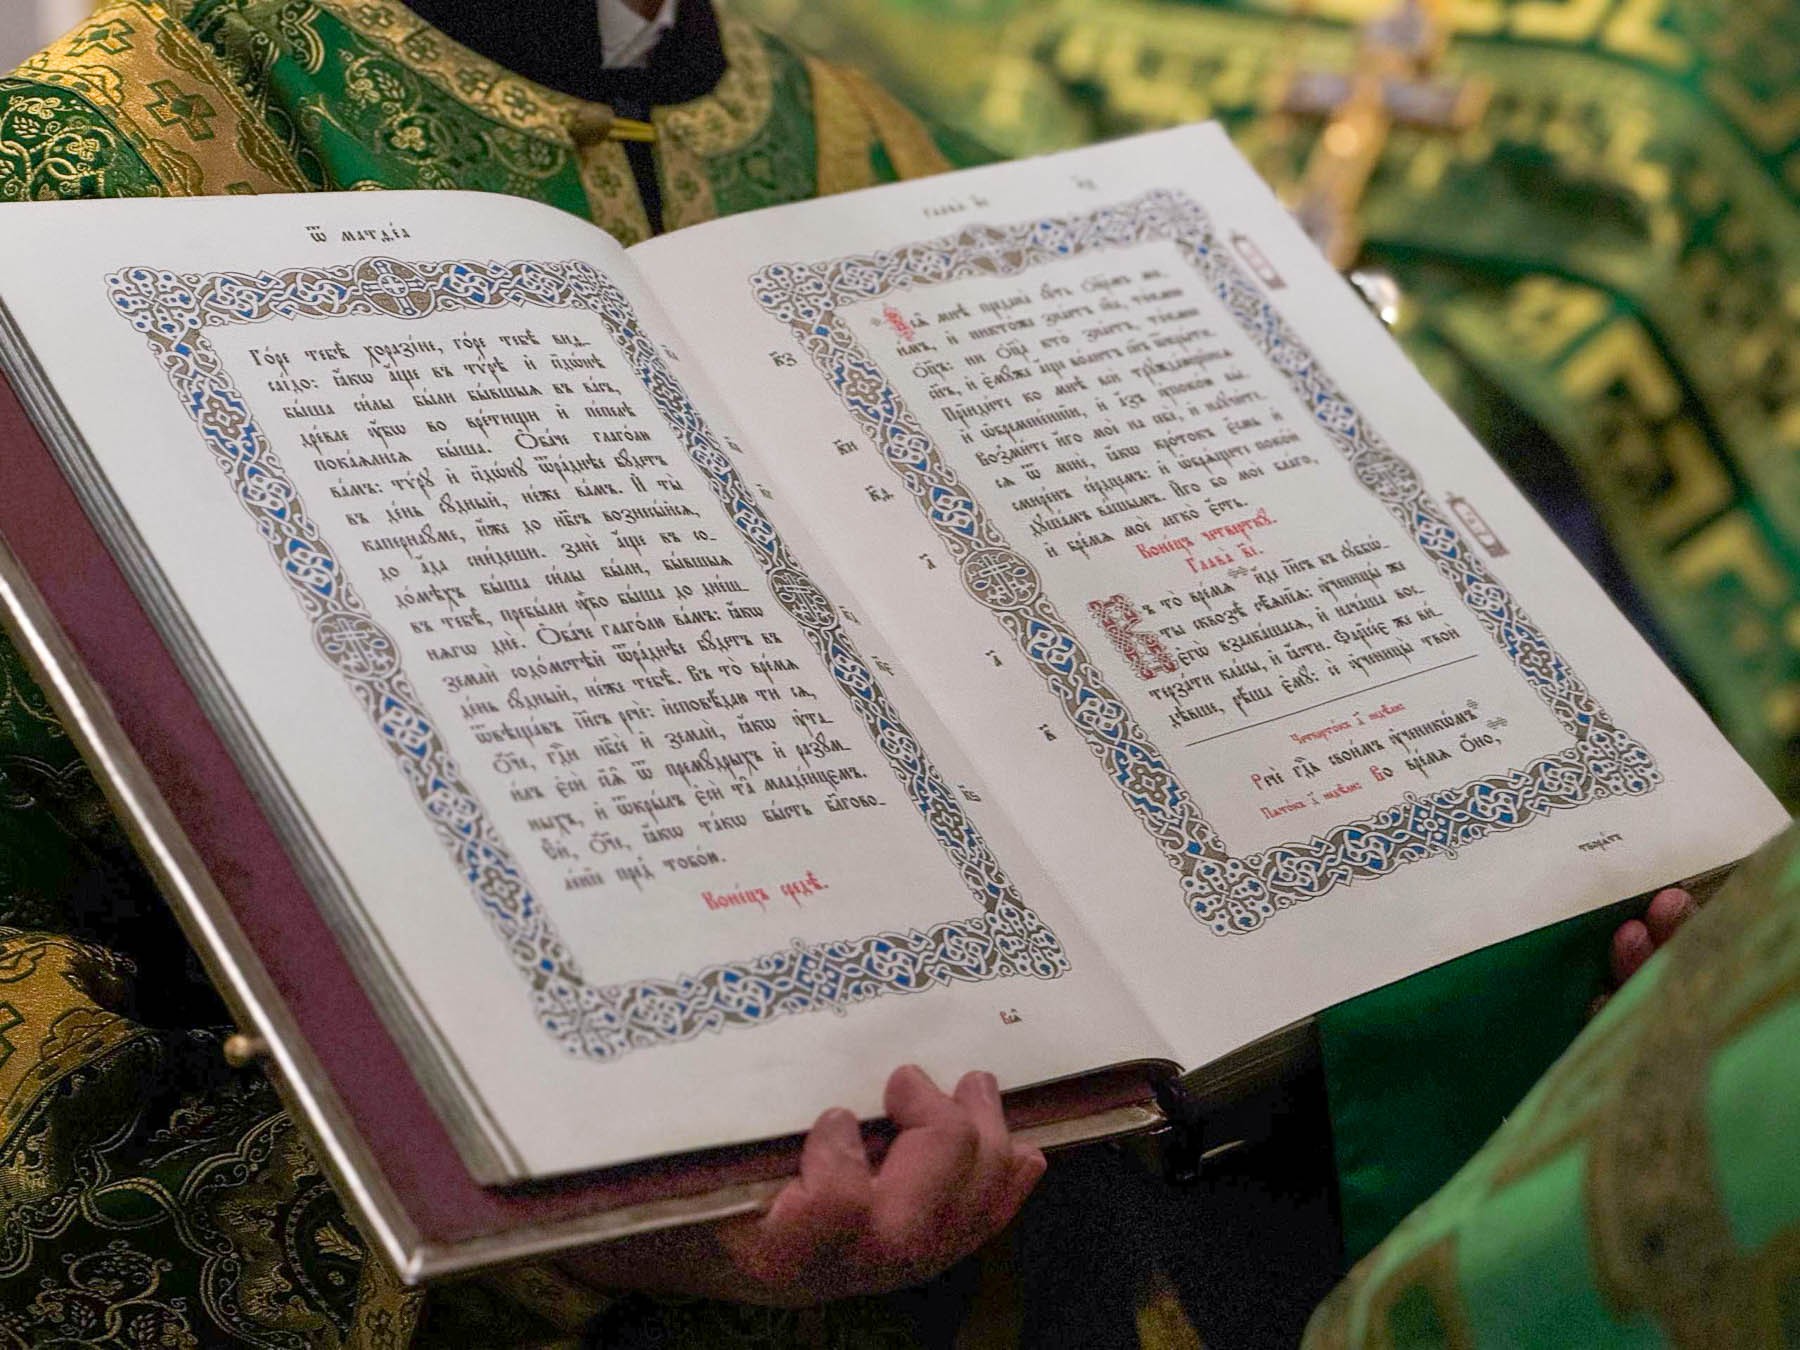 Ѿ МАТѲЕ́А
Го́ре тебѣ̀ хоразі́не, го́ре тебѣ̀ виѳ_
саі́до: ꙗ҆́кѡ а҆́ще въ тѵ́рѣ и҆ сїдѡ́нѣ
бы́ша си̑лы бы́ли бы́вшыѧ въ ва́съ,
дре́вле ᲂу҆́бѡ во вре́тищи и҆ пе́пелѣ
пока́ѧлисѧ бы́ша. Ѻ҆ба́че глаго́лю
ва́мъ: тѵ́рꙋ и҆ сїдѡ́нꙋ ѿра́днѣе бꙋ́детъ
въ де́нь сꙋ́дный, не́же ва́мъ. И҆ ты̀
капернаꙋ́ме, и҆́же до нб҃съ вознесы́йсѧ,
до а҆́да сни́деши. занѐ а҆́ще въ со_
до́мѣхъ бы́ша си̑лы бы́ли, бы́вшыѧ
въ тебѣ̀, пребы́ли ᲂу҆́бѡ бы́ша до дне́ш_
нѧгѡ днѐ. Ѻ҆ба́че глаго́лю ва́мъ: ꙗ҆́кѡ
землѝ содо́мстѣй ѿра́днѣе бꙋ́детъ въ
де́нь сꙋ́дный, не́же тебѣ̀. Въ то̀ вре́мѧ
ѿвѣща́въ і҆и҃съ речѐ: и҆сповѣ́даю ти сѧ,
ѻ҆́ч҃е, гдⷭ҇и нб҃сѐ и҆ землѝ, ꙗ҆́кѡ ᲂу҆та_
и́лъ є҆сѝ сїѧ̑ ѿ премꙋ́дрыхъ и҆ разꙋ́м_
ныхъ, и҆ ѿкры́лъ є҆сѝ та̑ младе́нцемъ.
Є҆́й, ѻ҆́ч҃е, ꙗ҆́кѡ та́кѡ бы́сть бл҃гово_
ле́нїе пред̾ тобо́ю.
Коне́цъ средѣ̀.
всѧ̑
Глава̀ в҃і
к҃з
к҃и
к҃ѳ
л҃
а҃
в҃
Всѧ̑ мнѣ̀ пре́дана сꙋ́ть ѻ҆ц҃е́мъ мо_
и́мъ, и҆ никто́же зна́етъ сн҃а, то́кмѡ
ѻ҆ц҃ъ: ни ѻ҆ц҃а̀ кто̀ зна́етъ, то́кмѡ
сн҃ъ, и҆ є҆мꙋ́же а҆́ще во́литъ сн҃ъ ѿкры́ти.
Прїиди́те ко мнѣ̀ всѝ трꙋжда́ющїисѧ
и҆ ѡ҆бремене́ннїи, и҆ а҆́зъ ᲂу҆поко́ю вы̀.
Возми́те и҆́го моѐ на себѐ, и҆ наꙋчи́те_
сѧ ѿ менѐ, ꙗ҆́кѡ кро́токъ є҆́смь и҆
смире́нъ се́рдцемъ: и҆ ѡ҆брѧ́щете поко́й
дꙋша́мъ ва́шымъ. И҆́го бо моѐ бла́го,
и҆ бре́мѧ моѐ легко̀ є҆́сть.
Коне́цъ четверткꙋ̀.
Глава̀ в҃і.
Въ то̀ вре́мѧ и҆́де і҆и҃съ въ сꙋббѡ_
ты сквозѣ̀ сѣ̑ѧнїѧ: ᲂу҆ченицы́ же
є҆гѡ̀ взалка́шасѧ, и҆ нача́ша вос_
терза́ти кла́сы, и҆ ꙗ҆́сти. Фарїсе́є же ви́_
дѣвше, рѣ́ша є҆мꙋ̀: сѐ ᲂу҆ченицы̀ твоѝ
Речѐ гдⷭ҇ь свои̑мъ ᲂу҆ченикѡ́мъ
Во вре́мѧ ѻ҆́но,
творѧ́тъ